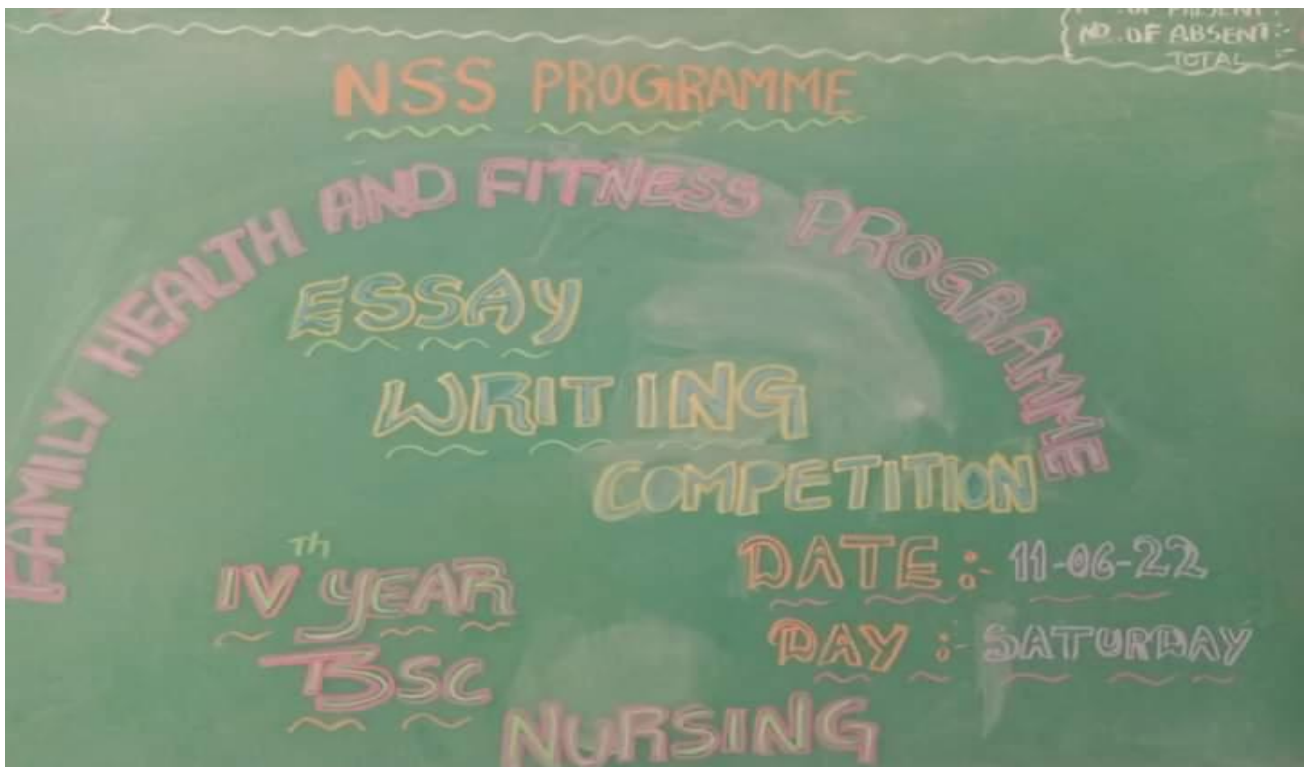 OF PRESENT :-
NO. OF ABSENT :-
TOTAL :-
NSS PROGRAMME
FAMILY HEALTH AND FITNESS PROGRAMME
ESSAY
WRITING
COMPETITION
IVth YEAR
BSC
NURSING
DATE :- 11-06-22
DAY :- SATURDAY